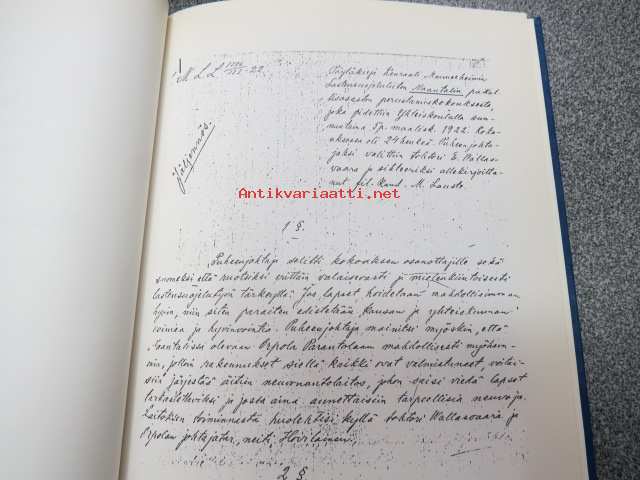 M L L 1086/III-22
Jäljennös.
Pöytäkirja Kenraali Mannerheimin
Lastensuojeluliiton Naantalin paikal-
lisosaston perustamiskokouksesta,
joka pidettiin Yhteiskoululla sun-
nuntaina 5p. maalisk. 1922. Koko-
uksessa oli 24 henkeä. Puheenjohta-
jaksi valittiin tohtori E. Vallas-
vaara ja sihteeriksi allekirjoitta-
nut fil. kand. M. Lausto.
Antikvariaatti.net
1 §.
Puheenjohtaja selitti kokouksen osanottajille sekä
suomeksi että ruotsiksi erittäin valaisevasti ja mielenkiintoisesti
lastensuojelutyön tärkeyttä. Jos lapset hoidetaan mahdollisimman
hyvin, niin siten paraiten edistetään kansan ja yhteiskunnan
voimaa ja hyvinvointia. Puheenjohtaja mainitsi myöskin, että
Naantalissa olevaan Orpola Parantolaan mahdollisesti myöhem-
min, jolloin rakennukset siellä kaikki ovat valmistuneet, voitai-
siin järjestää äidin neuvonantolaitos, johon saisi viedä lapset
tarkastettaviksi ja josta aina annettaisiin tarpeellisia neuvoja.
Laitoksen toiminnasta huolehtisi kyllä tohtori Wallasvaara ja
Orpolan johtajatar, neiti Hovilainen.
2 §